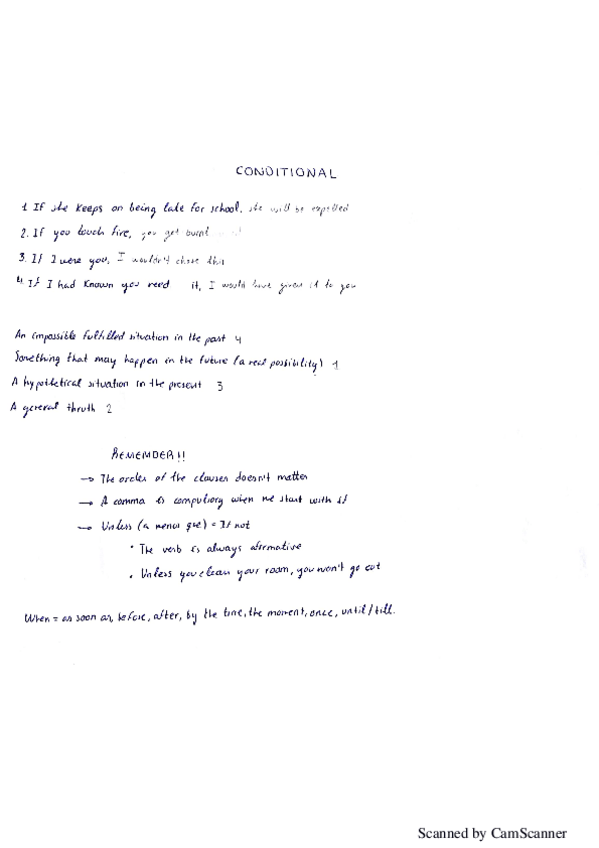 CONDITIONAL
1. If she keeps on being late for school, she will be expelled
2. If you touch fire, you get burnt
3. If I were you, I wouldn't chose this
4. If I had known you need it, I would have given it to you
An impossible fulfilled situation in the past 4
Something that may happen in the future (a real possibility) 1
A hypothetical situation in the present 3
A general thruth 2
REMEMBER!!
→ The order of the clauses doesn't matter
→ A comma is compulsory when we start with if
→ Unless (a menos que) = If not
• The verb is always afirmative
• Unless you clean your room, you won't go out
When = as soon as, before, after, by the time, the moment, once, until / till.
Scanned by CamScanner